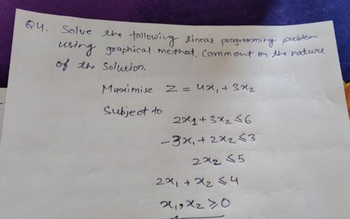 Q4. Solve the following linear programming problem
using graphical method. Comment on the nature
of the Solution.
Maximise Z = 4x₁ + 3x₂
Subject to
2x1 + 3x₂ ≤ 6
-3x₁ + 2x₂ ≤ 3
2x₂ ≤ 5
2x₁ + x₂ ≤ 4
x₁, x₂ ≥ 0